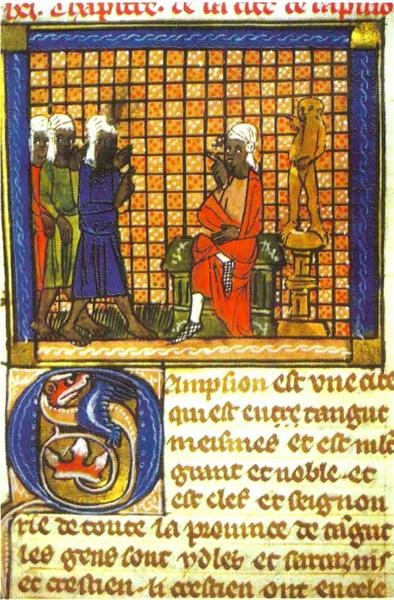 Chapitre. de la cite de campsio
Campsion est vne cite
qui est entre tangut
meismes et est mlt
grant et noble. et
est cles et seignou
rie de toute la prouince de tãgut
les gens sont ydles et sarrazins
et crestien. li crestien ont en cele